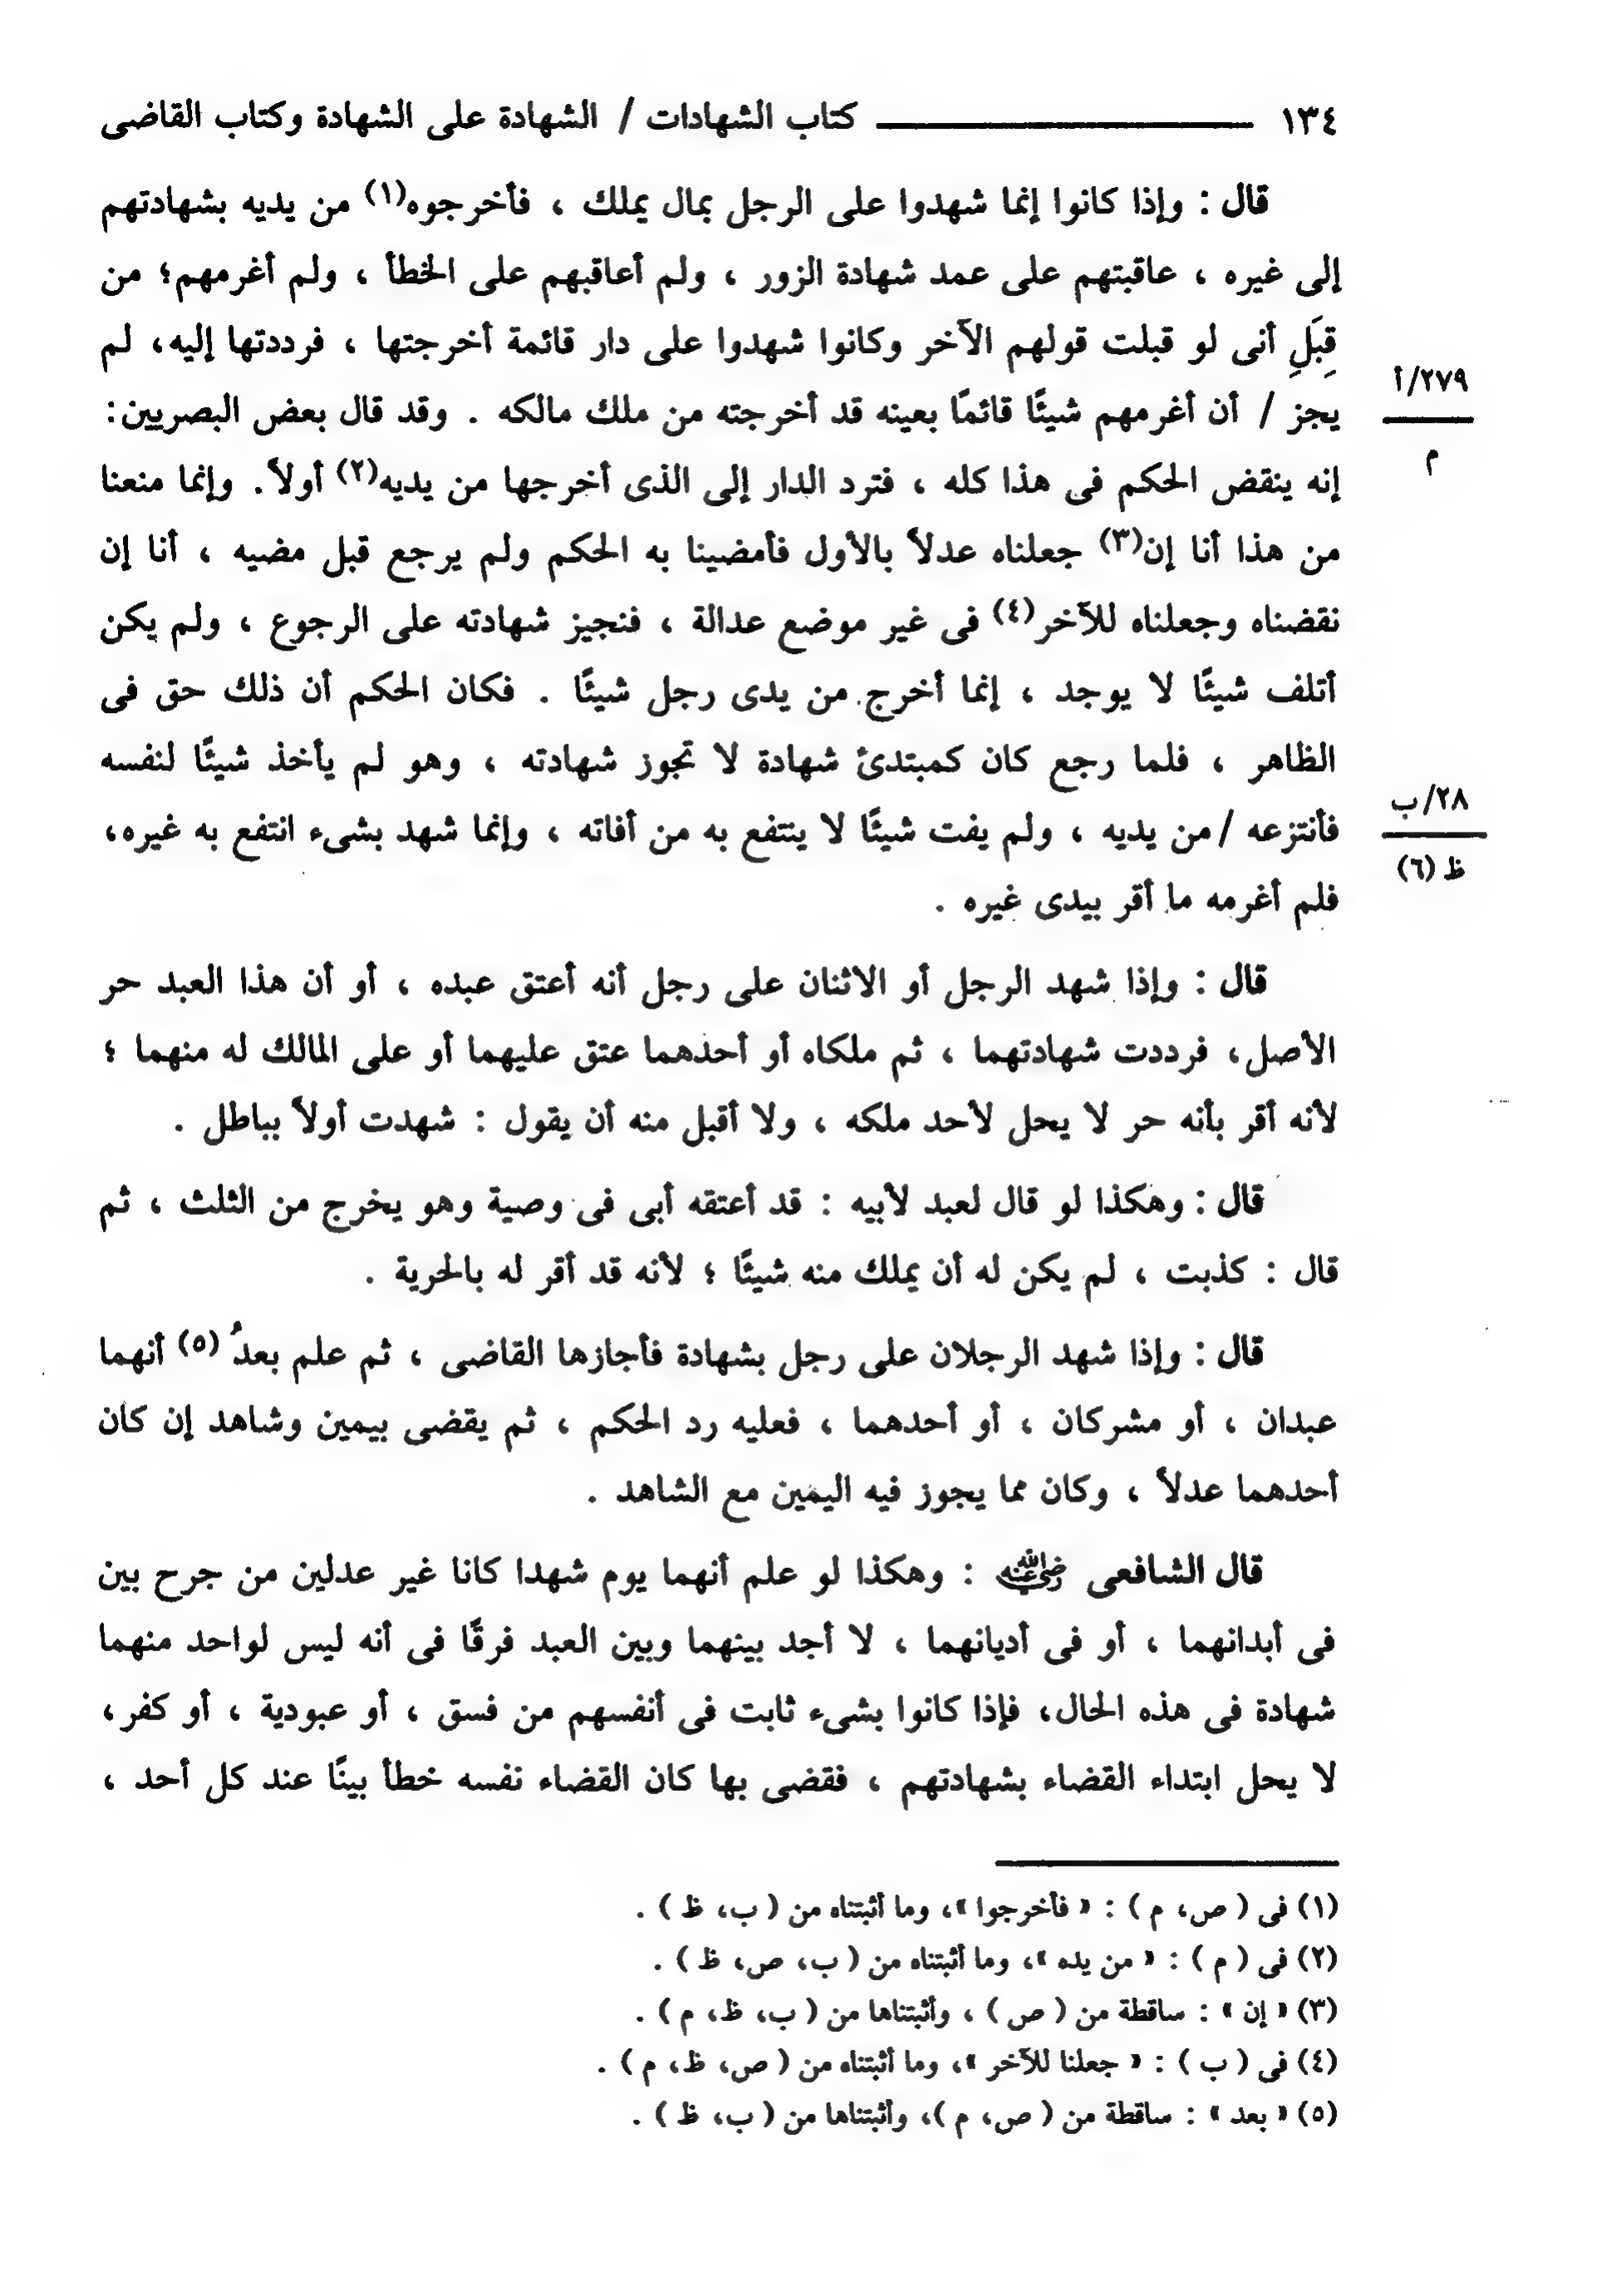 ١٣٤ ـــــــــــ كتاب الشهادات / الشهادة على الشهادة وكتاب القاضى
قال : وإذا كانوا إنما شهدوا على الرجل بمال يملك ، فأخرجوه(١) من يديه بشهادتهم
إلى غيره ، عاقبتهم على عمد شهادة الزور ، ولم أعاقبهم على الخطأ ، ولم أغرمهم؛ من
قِبَلِ أنى لو قبلت قولهم الآخر وكانوا شهدوا على دار قائمة أخرجتها ، فرددتها إليه، لم
٢٧٩/أ
م
يجز / أن أغرمهم شيئًا قائمًا بعينه قد أخرجته من ملك مالكه . وقد قال بعض البصريين:
إنه ينقض الحكم فى هذا كله ، فترد الدار إلى الذى أخرجها من يديه(٢) أولاً. وإنما منعنا
من هذا أنا إن(٣) جعلناه عدلاً بالأول فأمضينا به الحكم ولم يرجع قبل مضيه ، أنا إن
نقضناه وجعلناه للآخر(٤) فى غير موضع عدالة ، فنجيز شهادته على الرجوع ، ولم يكن
أتلف شيئًا لا يوجد ، إنما أخرج من يدى رجل شيئًا . فكان الحكم أن ذلك حق فى
الظاهر ، فلما رجع كان كمبتدئ شهادة لا تجوز شهادته ، وهو لم يأخذ شيئًا لنفسه
٢٨/ب
ظ (٦)
فأنتزعه / من يديه ، ولم يفت شيئًا لا ينتفع به من أفاته ، وإنما شهد بشىء انتفع به غيره،
فلم أغرمه ما أقر بيدى غيره .
قال : وإذا شهد الرجل أو الاثنان على رجل أنه أعتق عبده ، أو أن هذا العبد حر
الأصل، فرددت شهادتهما ، ثم ملكاه أو أحدهما عتق عليهما أو على المالك له منهما ؛
لأنه أقر بأنه حر لا يحل لأحد ملكه ، ولا أقبل منه أن يقول : شهدت أولاً بباطل .
قال : وهكذا لو قال لعبد لأبيه : قد أعتقه أبى فى وصية وهو يخرج من الثلث ، ثم
قال : كذبت ، لم يكن له أن يملك منه شيئًا ؛ لأنه قد أقر له بالحرية .
قال : وإذا شهد الرجلان على رجل بشهادة فأجازها القاضى ، ثم علم بعدُ (٥) أنهما
عبدان ، أو مشركان ، أو أحدهما ، فعليه رد الحكم ، ثم يقضى بيمين وشاهد إن كان
أحدهما عدلاً ، وكان مما يجوز فيه اليمين مع الشاهد .
قال الشافعى رضي الله عنه : وهكذا لو علم أنهما يوم شهدا كانا غير عدلين من جرح بين
فى أبدانهما ، أو فى أديانهما ، لا أجد بينهما وبين العبد فرقًا فى أنه ليس لواحد منهما
شهادة فى هذه الحال، فإذا كانوا بشىء ثابت فى أنفسهم من فسق ، أو عبودية ، أو كفر،
لا يحل ابتداء القضاء بشهادتهم ، فقضى بها كان القضاء نفسه خطأ بينًا عند كل أحد ،
(١) فى ( ص، م ) : « فأخرجوا »، وما أثبتناه من ( ب، ظ ) .
(٢) فى ( م ) : « من يده »، وما أثبتناه من ( ب، ص، ظ ) .
(٣) « إن » : ساقطة من ( ص ) ، وأثبتناها من ( ب، ظ، م ) .
(٤) فى ( ب ) : « جعلنا للآخر »، وما أثبتناه من ( ص، ظ، م ) .
(٥) « بعد » : ساقطة من ( ص، م )، وأثبتناها من ( ب، ظ ) .